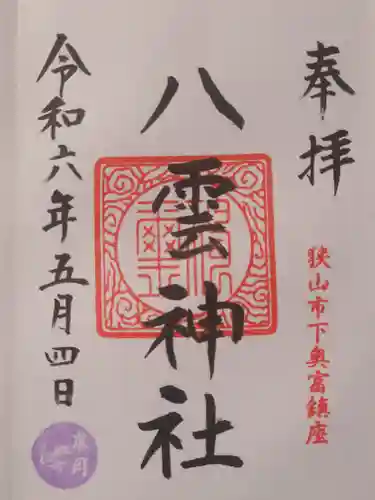 奉拝
狭山市下奥富鎮座
八雲神社
令和六年五月四日